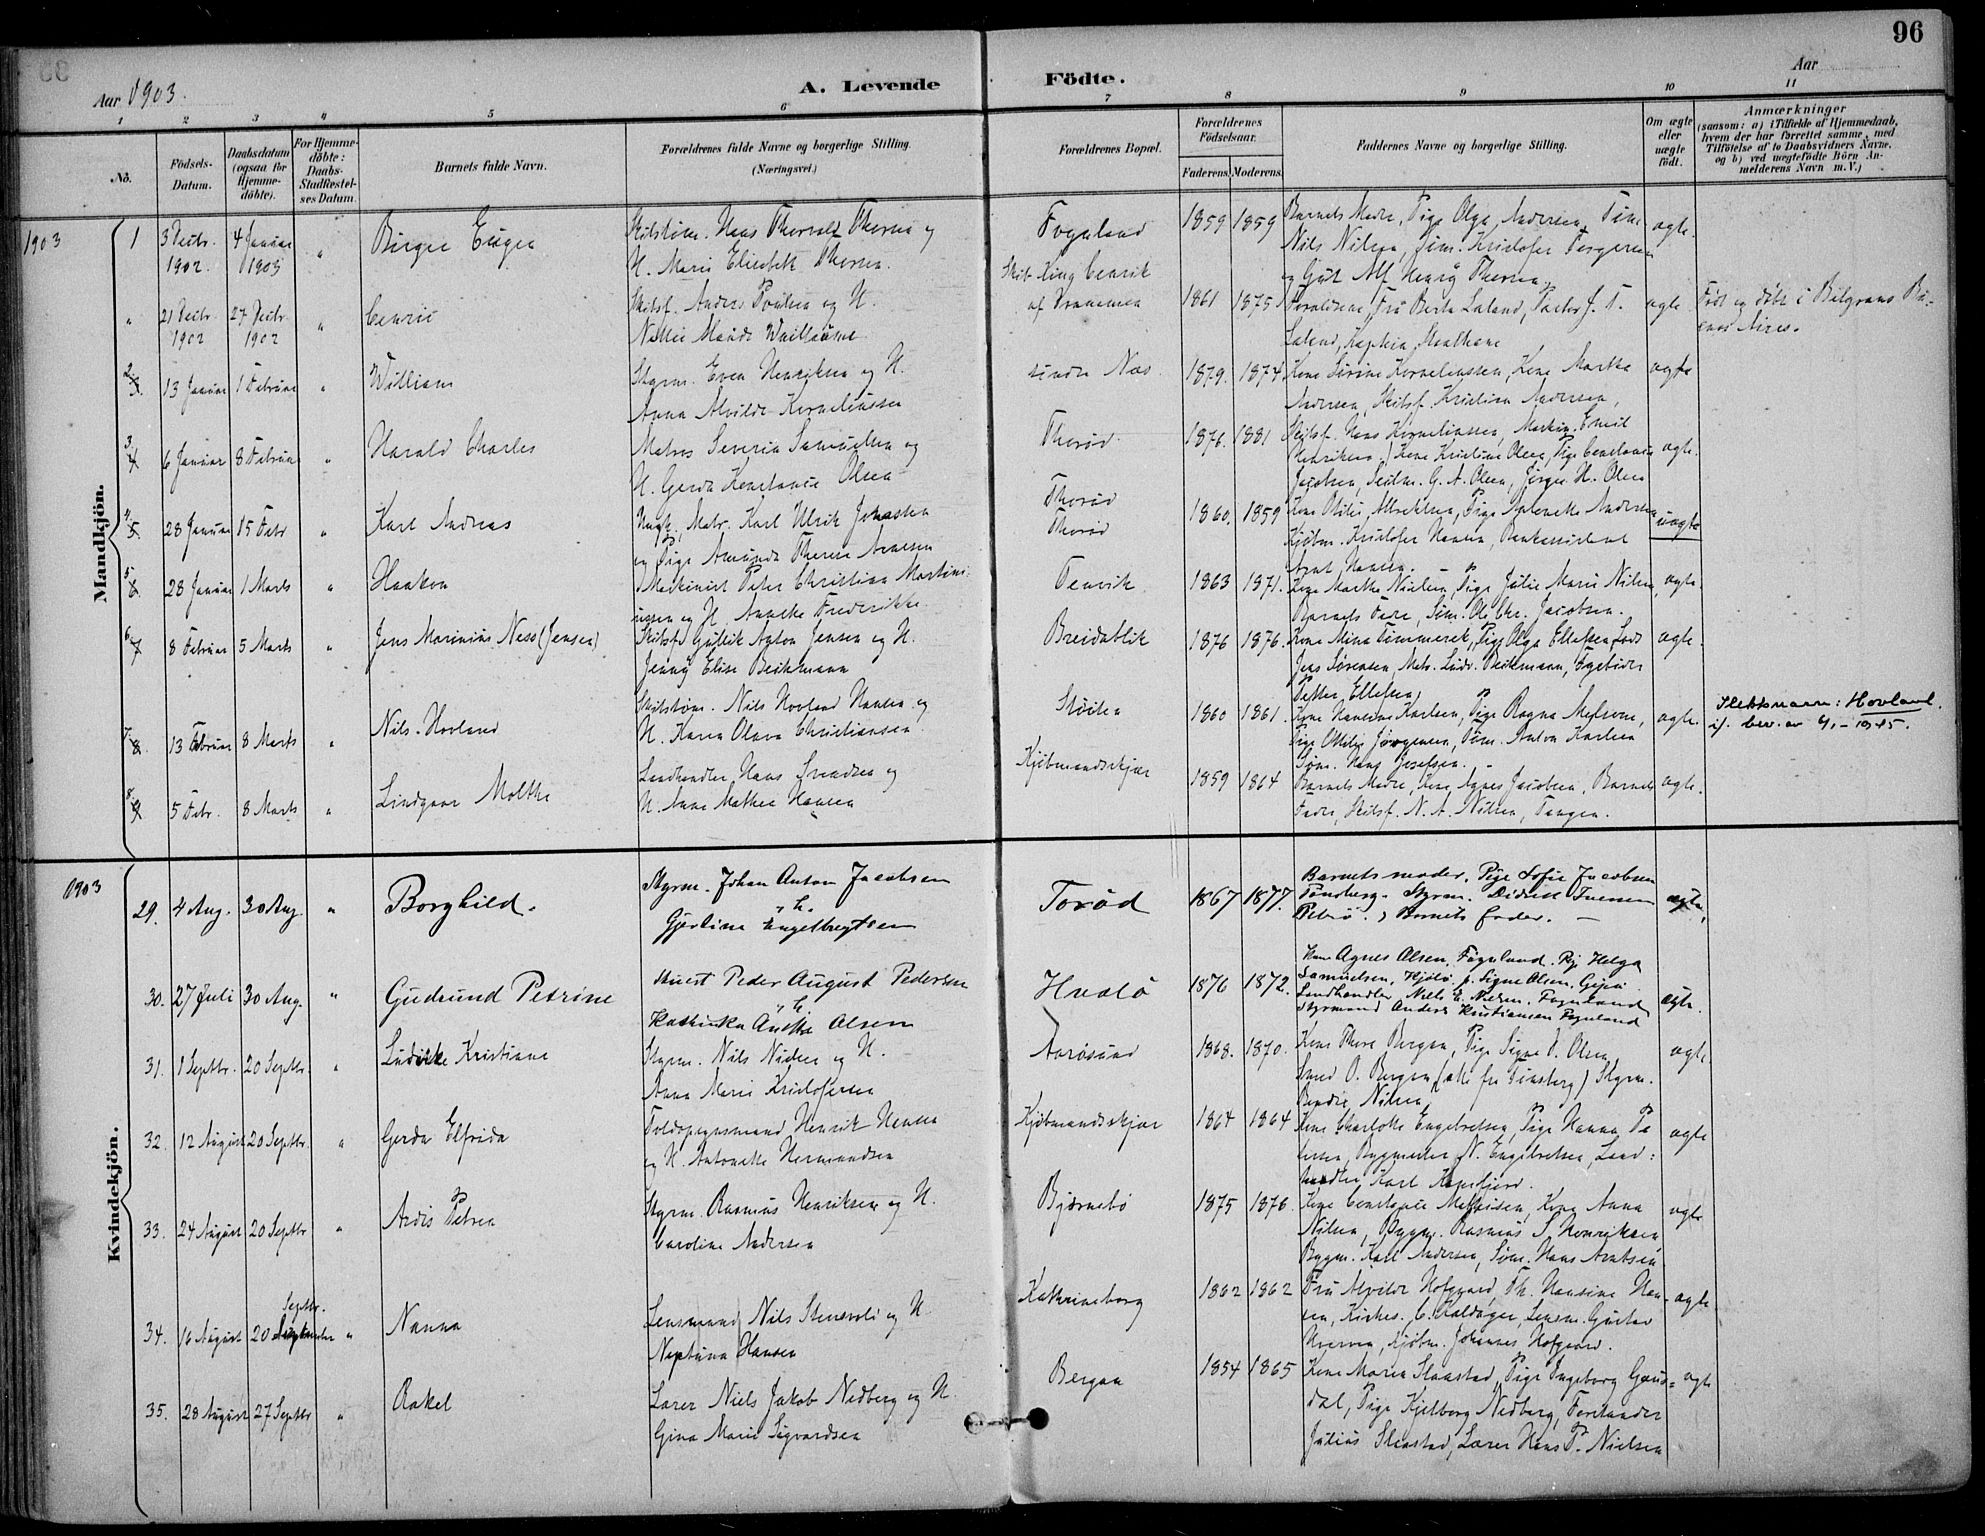 96
Aar 1903.
A. Levende Födte.
Aar
1 2 3 4 5 6 7 8 9 10 11
No.
Födsels-Datum.
Daabsdatum (ogsaa for Hjemme-döbte).
For Hjemme-döbte: Daabs-Stadfæstel-ses Datum.
Barnets fulde Navn.
Forældrenes fulde Navne og borgerlige Stilling.
(Næringsvei.)
Forældrenes Bopæl.
Forældrenes Födselsaar.
Faderens. Moderens.
Faddernes Navne og borgerlige Stilling.
Om ægte eller uægte födt.
Anmærkninger
(saasom: a) i Tilfælde af Hjemmedaab, hvem der har forrettet samme, med Tilföielse af to Daabsvidners Navne, og b) ved uægtefödte Börn An-melderens Navn m. V.)
Mandkjön.
1903
1 3 Decbr. 1902. 4 Januar 1903 " Birger Eugen
Skibstøm. Hans Thorvald Thorsen og
H. Marie Elisabeth Thorsen
Føynland 1859 1859
Barnets Madre, Pige Olga Andersen, Tøm.
Nils Nilsen, Søm. Kristofer Torgersen
og Gut Alf Henry Thorsen
ægte.
" 21 Decbr. 1902 27 Decbr. 1902 " Cenric
Skibsf. Anders Poulsen og H.
Nellie Maude Williaume
Skib King Cenrik
af Drammen 1861 1875
Forældrene, Fru Berta Løland, Pastor J. T.
Løland, Kaptein
ægte
Født og døbt i Belgrano Bu-
enos Aires.
2 13 Januar 1 Februar " William
Styrm. Even Henriksen og H.
Anna Alvilde Korneliussen
søndre Næs 1879. 1874
Kone Sørine Korneliussen, Kone Martha
Andersen, Skibsf. Kristian Andersen,
Skibsf. Hans Korneliussen, Maskin. Emil
Henriksen
ægte
3 6 Januar 8 Februar " Harald Charles
Matros Severin Samuelsen og
H. Gerda Konstanse Olsen
Thorød 1876. 1881
Kone Kristine Olsen, Pige Constance
Jacobsen, Seilm. G. A. Olsen, Jørgen H. Olsen
ægte.
4 28 Januar 15 Febr " Karl Andreas
Ungk., Matr. Karl Ulrik Johansen
og Pige Amunda Therese Arnesen
Thorød
Thorød 1860. 1859
Kone Otilie Albrektsen, Pige Antonette Andersen
Kjøbm. Kristofer Hansen, Bankassistent
Arnt Hansen.
uægte
5 28 Januar 1 Marts " Haakon
Maskinist Peter Christian Martini-
ussen og H. Annette Frederikke
Tenvik 1863 1871.
Kone Marthe Nielsen, Pige Julie Marie Nilsen,
Barnets Fader, Søm. Ole Chr. Jacobsen.
ægte.
6 7 8 Februar 5 Marts " Jens Marinius Ness (Jensen)
Skibsf. Gullik Anton Jensen og H.
Jenny Elise Beichmann
Breidablik 1876 1876.
Kone Mina Tømmerek, Pige Olga Ellefsen, Lods
Jens Sørensen, Matr. Ludv. Beichmann, Fyrbøder
Petter Ellefsen
ægte.
7 8 13 Februar 8 Marts " Nils Hovland
Skibstøm. Nils Hovland Hansen og
H. Karen Olava Christiansen
Støiten 1860 1861.
Kone Hansine Karlsen, Pige Ragna Melsom,
Pige Ottilie Jørgensen, Tøm. Anton Karlsen
Søm. Hans Josefsen.
ægte.
Slektsnavn: Hovland.
if. bev. av 4/1-1945.
8 9 5 Febr. 8 Marts " Lindgaar Molthe
Landhandler Hans Svendsen og
H. Anne Mathea Hansen
Kjøbmandsskjær 1859 1864
Barnets Madre, Kone Agnes Jacobsen, Barnets
Fader, Skibsf. N. A. Nilsen, Tangen.
ægte.
Kvindekjön.
1903
29. 4 Aug. 30 Aug. " Borghild.
Styrm. Johan Anton Jacobsen
" h.
Gjertine Engelbregtsen
Torød 1867 1877.
Barnets moder. Pige Sofie Jacobsen
Tønsberg. Styrm. Didrik Iversen
Petrø. Barnets fader.
ægte.
30. 27 Juli 30 Aug. " Gudrund Petrine
Stuert Peder August Pedersen
" h.
Kathinka Anette Olsen
Hvalø 1876 1872.
Kone Agnes Olsen, Føynland. Pig. Helga
Samuelsen, Hjølø. p. Signe Olsen, Gipø.
Landhandler Nils E. Nielsen, Føynland
Styrmand Anders Kristiansen Føynland
ægte.
31. 1 Septbr. 20 Septbr. " Ludvikke Kristiane
Styrm. Nils Nielsen og H.
Anna Marie Kristofersen
Aarøsund 1868. 1870.
Kone Thora Bergan, Pige Signe O. Olsen,
Smed O. Bergan (alle fra Tønsberg) Styrm.
Bendix Nilsen
ægte.
32. 12 August 20 Septbr. " Gerda Elfrida
Toldopsynsmand Henrik Hansen
og H. Antonette Hermandsen
Kjøbmandsskjær 1864 1864
Kone Charlotte Engebretsen, Pige Hanna Pe
tersen, Bygmester N. Engebretsen, Land-
handler Karl Agnefjord.
ægte
33. 24 August 20 Septbr " Ardis Petrea
Styrm. Rasmus Henriksen og H.
Caroline Andersen
Bjørnebø 1875 1876.
Kone Constance Mathisen, Kone Anna
Nilsen, Bygm. Rasmus S. Henriksen,
Bygm. Karl Andersen, Søm. Hans Arntsen
ægte
34. 16 August 20 Septbr. " Nanna
Lensmand Nils Stensvold og H.
Neptuna Hansen
Kathrineborg 1862 1862
Fru Alvilde Hofgaard, Th. Hansine Han-
sen, Kirkes. C. Kaldager, Lensm. Gustav
Unersen, Kjøbm. Johannes Hofgaard.
ægte.
35. 28 August 27 Septbr " Rakel
Lærer Niels Jakob Nedberg og H.
Gina Marie Sigvardsen
Bergan 1854 1865
Kone Maren Slaastad, Pige Ingeborg Gaus-
dal, Pige Kjelborg Nedberg, Forstander
Julius Slaastad, Lærer Hans P. Nielsen
ægte